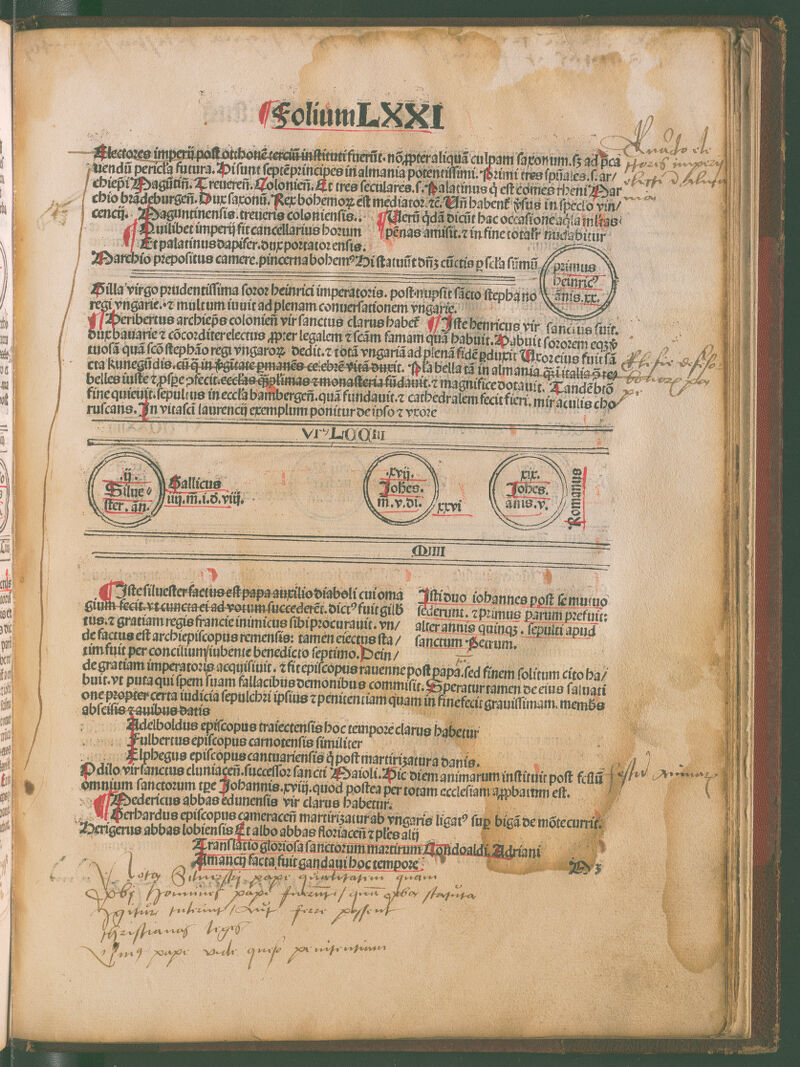 Folium LXXI
Electores imperij post otthonē terciū instituti fuerūt. nō ꝓpter aliquā culpam saxonum. sʒ ad p̄ca
uendū pericl̓a futura. Hi sunt septē principes in almania potentissimi. Primi tres spūales. s. ar/
chiep̄i Magūtiñ. Treuereñ. Colonieñ. Et tres seculares. s. Palatinus q̄ est comes rheni Mar
chio brādeburgeñ. Dux saxonū. Rex bohemorꝝ est mediator. ⁊c. Vñ habent v̓sus in speclo vin/
cencij. Maguntinensis. treueris coloniensis..
¶ Verū q̄dā dicūt hac occasione aq̄la mltas
Quilibet imperij fit cancellarius horum
pēnas amisit. ⁊ in fine totalr̄ nudabitur
Et palatinus dapifer. dux portator ensis.
Marchio prepositus camere. pincerna bohemꝰ Hi statuūt dñʒ cūctis ꝑ scl̓a sūmū
primus
heinricꝰ
āñis. xx.
Gilla virgo prudentissima soror heinrici imperatoris. post nupsit sācto stephano
regi vngarie. ⁊ multum iuuit ad plenam conuersationem vngarie.
¶ Heribertus archiep̄s colonieñ vir sanctus clarus habet̄ ¶ Iste henricus vir sanctus fuit.
dux bauarie ⁊ cōcorditer electus ꝓpter legalem ⁊ scām famam quā habuit. Habuit sororem
tuosā quā scō stephāo regi vngarorꝝ dedit. ⁊ totā vngariā ad plenā fidē ꝑduxit Vxor eius fuit sā
cta kunegūdis. cū q̄ in v̓gītate ꝑmanēs celebrē vitā duxit. Plᵃ bella tā in almania qʒ ī italia
belles iuste ⁊ ꝓspe ꝯfecit. ecclīas q̄ꝫplimas ⁊ monasteria fūdauit. ⁊ magnifice dotauit. Tandē btō
fine quieuit. sepultus in eccl̓a bambergeñ. quā fundauit. ⁊ cathedralem fecit fieri. miraculis cho
ruscans. In vita scī laurencij exemplum ponitur de ipso ⁊ vxore
.ij.
Silue
ster. an.
Gallicus
iiij. m̄. i. d. viij.
.xvij.
Johes.
m̄. v. di.
xxvi
xix.
Johes.
anis. v.
Romanus
¶ Iste siluester factus est papa auxilio diaboli cui oma
gium fecit. vt cuncta ei ad votum succederēt. dictꝰ fuit gilb
tus. ⁊ gratiam regis francie inimicus sibi procurauit. vn/
de factus est archiepiscopus remensis: tamen eiectus sta/
tim fuit per concilium iubente benedicto septimo. Dein/
Isti duo iohannes post se mutuo
sederunt. ⁊ primus parum prefuit:
alter annis quinqʒ. sepulti apud
sanctum Petrum.
de gratiam imperatoris acquisiuit. ⁊ fit episcopus rauenne post papa. sed finem solitum cito ha/
buit. vt puta qui spem suam fallacibus demonibus commisit. Speratur tamen de eius saluati
one propter certa iudicia sepulchri ipsius ⁊ penitentiam quam in fine fecit grauissimam. membris
abscisis ⁊ auibus datis
Adelboldus episcopus traiectensis hoc tempore clarus habetur
Fulbertus episcopus carnotensis similiter
Elphegus episcopus cantuariensis q̄ post martirizatur a danis.
Odilo vir sanctus cluniaceñ. successor sancti Maioli. Hic diem animarum instituit post festū
omnium sanctorum tp̄e Johannis. xviij. quod postea per totam ecclesiam approbatum est.
¶ Medericus abbas edunensis vir clarus habetur.
¶ Gerhardus episcopus cameraceñ martirizatur ab vngaris ligatꝰ sup̄ bigā de mōte currit.
Herigerus abbas lobiensis Et albo abbas floriaceñ ⁊ ples alij
Translatio gloriosa sanctorum martirum Londoaldi Adriani
Amancij facta fuit gandaui hoc tempore
Nota Siluestri pape qualitatem quam
christianas leges